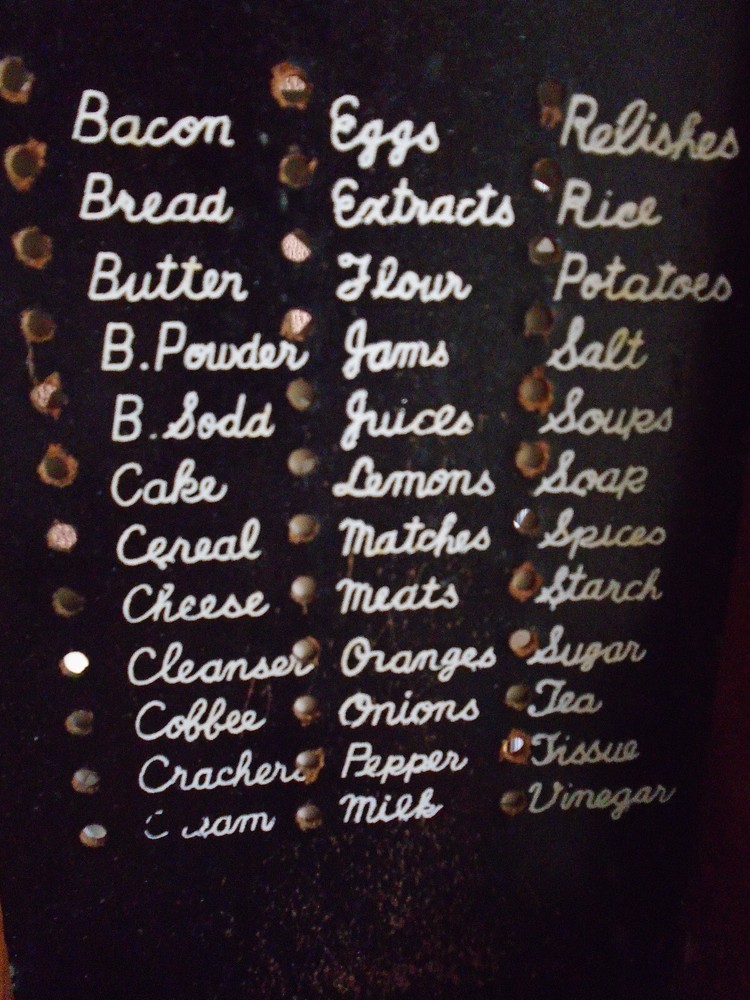 Bacon
Bread
Butter
B.Powder
B.Soda
Cake
Cereal
Cheese
Cleanser
Coffee
Crackers
Cream
Eggs
Extracts
Flour
Jams
Juices
Lemons
Matches
Meats
Oranges
Onions
Pepper
Milk
Relishes
Rice
Potatoes
Salt
Soups
Soap
Spices
Starch
Sugar
Tea
Tissue
Vinegar